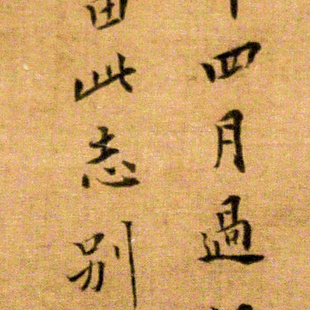 四月過
此志别